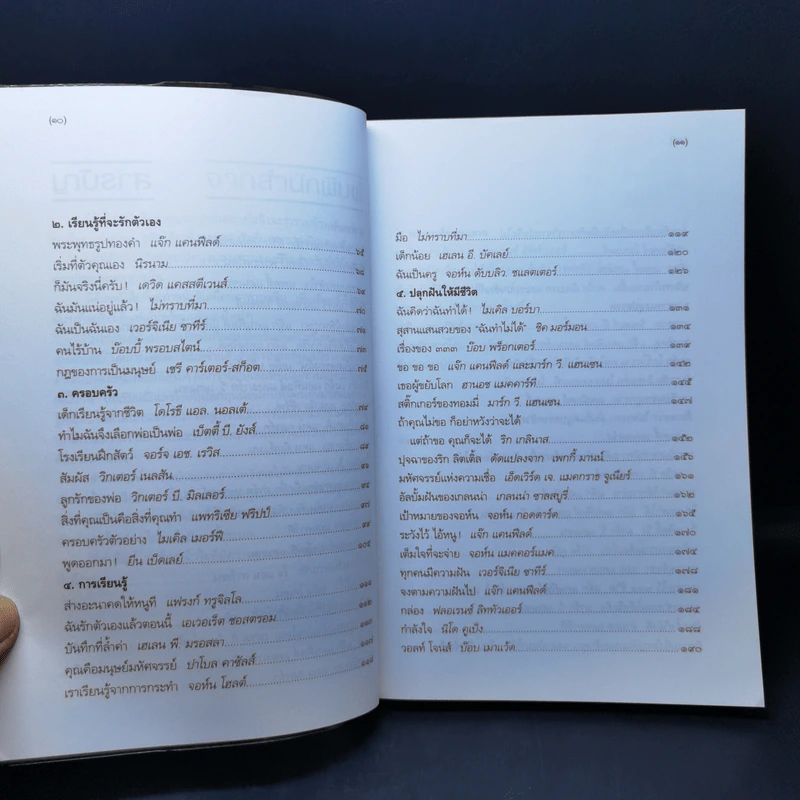 (๑๐)
๒. เรียนรู้ที่จะรักตัวเอง
พระพุทธรูปทองคำ แจ๊ก แคนฟีลด์ ๖๕
เริ่มที่ตัวคุณเอง นิรนาม ๖๘
ก็มันจริงนี่ครับ! เดวิด แคสสตีเวนส์ ๖๙
ฉันมันแน่อยู่แล้ว! ไม่ทราบที่มา ๗๐
ฉันเป็นฉันเอง เวอร์จิเนีย ซาทีร์ ๗๑
คนไร้บ้าน บ๊อบบี้ พรอบสไตน์ ๗๒
กฎของการเป็นมนุษย์ เชรี คาร์เตอร์-สก็อต ๗๕
๓. ครอบครัว
เด็กเรียนรู้จากชีวิต โดโรธี แอล. นอลเต้ ๗๙
ทำไมฉันจึงเลือกพ่อเป็นพ่อ เบ็ตตี้ บี. ยังส์ ๘๑
โรงเรียนฝึกสัตว์ จอร์จ เอช. เรวิส ๘๙
สัมผัส วิกเตอร์ เนลสัน ๙๑
ลูกรักของพ่อ วิกเตอร์ บี. มิลเลอร์ ๙๔
สิ่งที่คุณเป็นคือสิ่งที่คุณทำ แพทริเซีย ฟริปป์ ๙๗
ครอบครัวตัวอย่าง ไมเคิล เมอร์ฟี ๙๙
พูดออกมา! ยีน เบ็ดเลย์ ๑๐๔
๔. การเรียนรู้
ส่างอะนาคดให้หนูที แฟรงก์ ทรูจิลโล ๑๑๑
ฉันรักตัวเองแล้วตอนนี้ เอเวอเร็ต ชอสตรอม ๑๑๒
บันทึกที่ล้ำค่า เฮเลน พี. มรอสลา ๑๑๓
คุณคือมนุษย์มหัศจรรย์ ปาโบล คาซัลส์ ๑๑๗
เราเรียนรู้จากการกระทำ จอห์น โฮลต์ ๑๑๘
(๑๑)
มือ ไม่ทราบที่มา ๑๑๙
เด็กน้อย เฮเลน อี. บัคเลย์ ๑๒๐
ฉันเป็นครู จอห์น ดับบลิว. ชแลตเตอร์ ๑๒๖
๕. ปลุกฝันให้มีชีวิต
ฉันคิดว่าฉันทำได้! ไมเคิล บอร์บา ๑๓๑
สุสานแสนสวยของ “ฉันทำไม่ได้” ชิค มอร์มอน ๑๓๔
เรื่องของ ๓๓๓ บ๊อบ พร็อกเตอร์ ๑๓๙
ขอ ขอ ขอ แจ๊ก แคนฟีลด์ และมาร์ก วี. แฮนเซน ๑๔๒
เธอผู้ขยับโลก ฮานอช แมคคาร์ที ๑๔๕
สติ๊กเกอร์ของทอมมี่ มาร์ก วี. แฮนเซน ๑๔๗
ถ้าคุณไม่ขอ ก็อย่าหวังว่าจะได้
แต่ถ้าขอ คุณก็จะได้ ริก เกลินาส ๑๕๒
ปุจฉาของริก ลิตเติ้ล ดัดแปลงจาก เพกกี้ มานน์ ๑๕๖
มหัศจรรย์แห่งความเชื่อ เอ็ดเวิร์ด เจ. แมคกราธ จูเนียร์ ๑๖๑
อัลบั้มฝันของเกลนน่า เกลนน่า ซาลสบูรี่ ๑๖๒
เป้าหมายของจอห์น จอห์น กอดดาร์ด ๑๖๕
ระวังไว้ ไอ้หนู! แจ๊ก แคนฟีลด์ ๑๗๐
เต็มใจที่จะจ่าย จอห์น แมคคอร์แมค ๑๗๔
ทุกคนมีความฝัน เวอร์จิเนีย ซาทีร์ ๑๗๘
จงตามความฝันไป แจ๊ก แคนฟีลด์ ๑๘๑
กล่อง ฟลอเรนซ์ ลิททัวเออร์ ๑๘๔
กำลังใจ นิโด คูเบ็ง ๑๘๘
วอลท์ โจนส์ บ๊อบ เมาแว้ด ๑๙๐